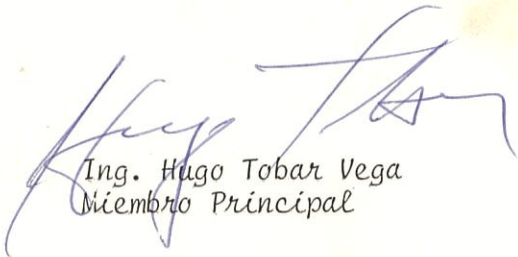 Hugo Tobar
Ing. Hugo Tobar Vega
Miembro Principal